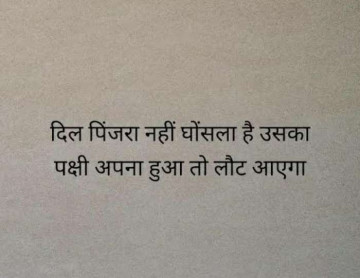 दिल पिंजरा नहीं घोंसला है उसका
पक्षी अपना हुआ तो लौट आएगा